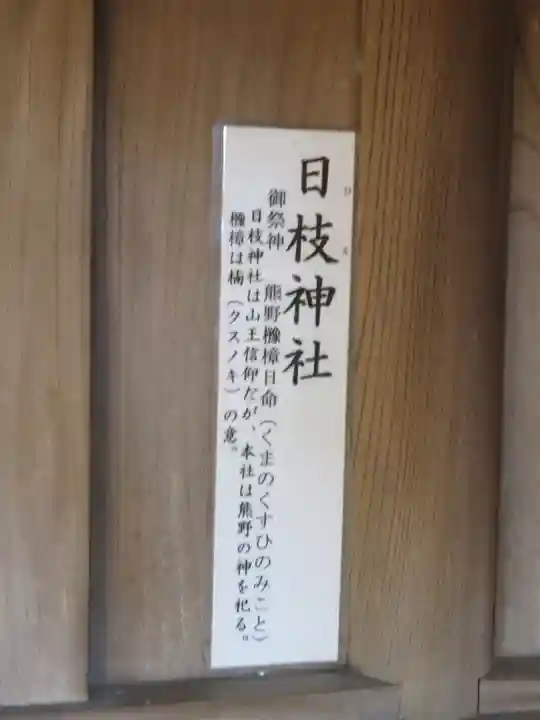 日枝神社
ひえ
御祭神 熊野沲樟日命(くまのくすひのみこと)
日枝神社は山王信仰だが、本社は熊野の神を祀る。
櫲樟は楠(クスノキ)の意。